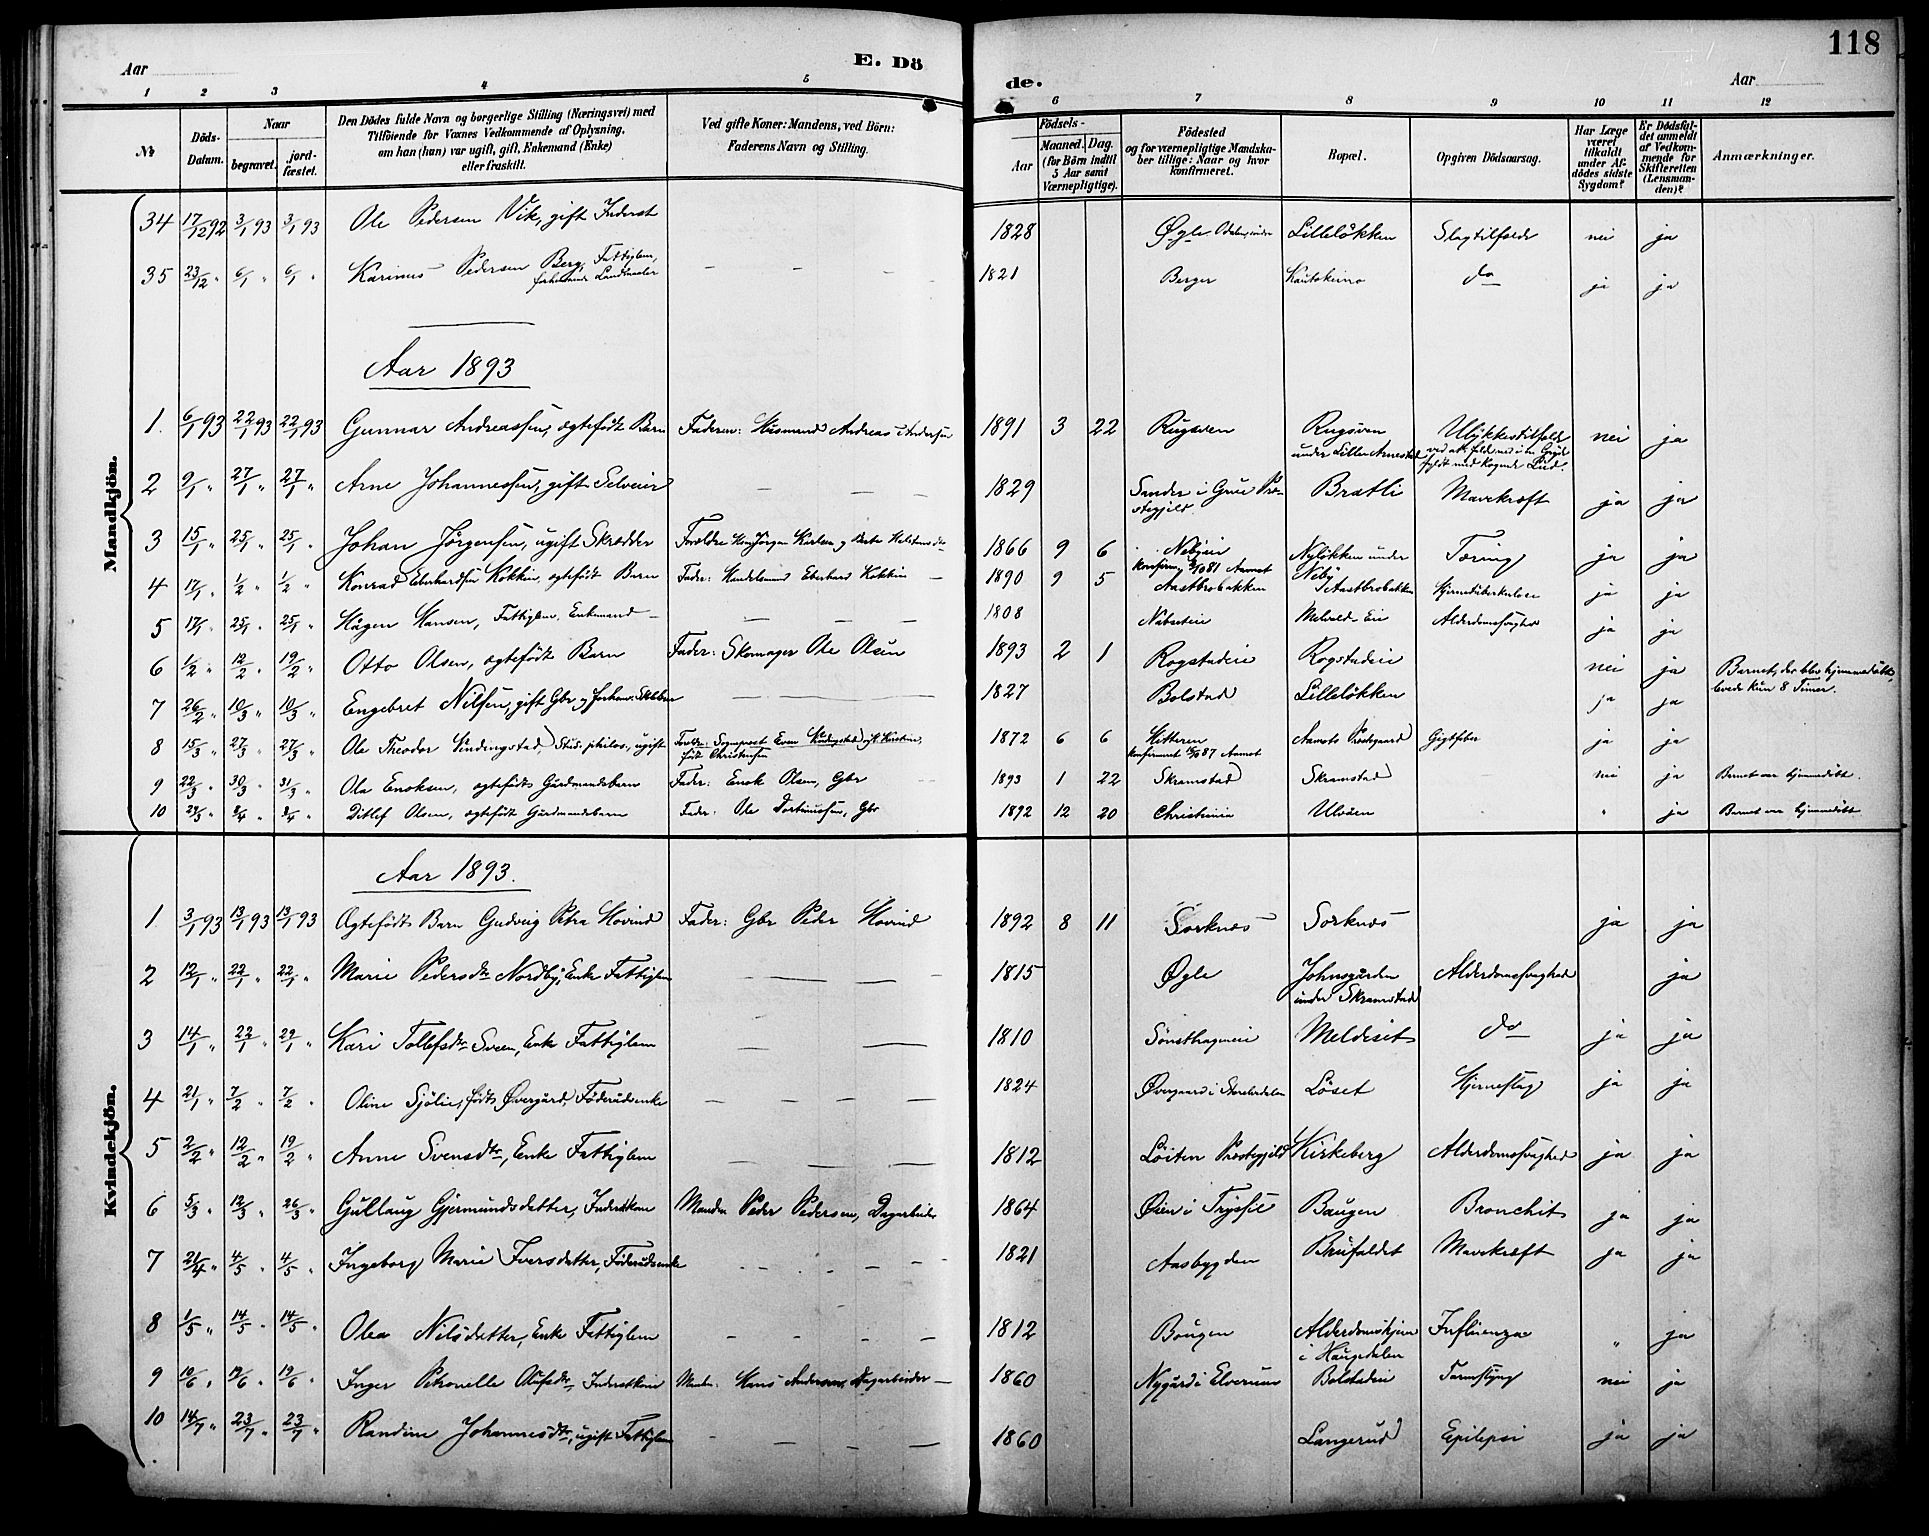 118
Aar
E. Dö
de.
Aar
1 2 3 4 5 6 7 8 9 10 11 12
№
Döds-
Datum.
Naar
begravet.
jord-
fæstet.
Den Dödes fulde Navn og borgerlige Stilling (Næringsvei) med
Tilföiende for Voxnes Vedkommende af Oplysning,
om han (hun) var ugift, gift, Enkemand (Enke)
eller fraskilt.
Ved gifte Koner: Mandens, ved Börn:
Faderens Navn og Stilling.
Födsels-
Aar
Maaned. Dag.
(for Börn indtil
5 Aar samt
Værnepligtige).
Födested
og for værnepligtige Mandska-
ber tillige: Naar og hvor
konfirmeret.
Bopæl.
Opgiven Dödsaarsag.
Har Læge
været
tilkaldt
under Af-
dödes sidste
Sygdom?
Er Dödsfal-
det anmeldt
af Vedkom-
mende for
Skifteretten
(Lensman-
den)?
Anmærkninger.
Mandkjön.
34 17/12 92 3/1 93 3/1 93 Ole Pedersen Vik, gift Inderst 1828 Øgle Lilleløkken Slagtilfælde nei ja
35 23/12 " 6/1 " 6/1 " Karinus Pedersen Berg, Fattiglem, — — — 1821 Berger Kautokeino do ja ja
forhenværende Landhandler
Aar 1893
1. 6/1 93 22/1 93 22/1 93 Gunnar Andreassen, ægtefødt Barn Faderen: Husmand Andreas Andersen 1891 3 22 Rugsveen Rugsveen Ulykkestilfælde nei ja
under Lille Arnestad ved at falde ned i en Gryde
fyldt med kogende Lud.
2 9/1 " 27/1 " 27/1 " Arne Johannessen, gift Selveier — — — 1829 Sander i Grue Præ- Brætli Mavekræft ja ja
stegjeld.
3 15/1 " 25/1 " 25/1 " Johan Jörgensen, ugift Skrædder Forældre Jörgen Karlsen og 1866 9 6 Nebyeie Nyløkken under Tæring ja ja
Aamot Neby
4 17/1 " 1/2 " 1/2 " Konrad Eberhardsen Kokkin, ægtefødt Barn Fader: Handelsmand Eberhard Kokkin — 1890 9 5 Aastbrobakken Aastbrobakken Hjernetuberkulose ja ja
5 17/1 " 25/1 " 25/1 " Hågen Hansen, Fattiglem, Enkemand — — — 1808 Nabseteie Eie Alderdomssvaghed ja ja
6 1/2 " 12/2 " 19/2 " Otto Olsen, ægtefødt Barn Fader: Skomager Ole Olsen 1893 2 1 Rogstadeie Rogstadeie nei ja Barnet, der blev hjemmedøbt,
levede kun 8 Timer.
7 26/2 " 10/3 " 10/3 " Engebret Nilsen, gift Gbr. og — — — 1827 Bolstad Lilleløkken ja ja
8 15/3 " 27/3 " 27/3 " Ole Theodor Vindingstad, Stud. philos., ugift Foreldr.: Sogneprest Even Vindingstad 1872 6 6 Hitteren Aamots Præstegaard Gigtfeber ja ja
født Christensen 87 Aamot
9 22/3 " 30/3 " 31/3 " Ola Enoksen, ægtefødt Gårdmandsbarn Fader: Enok Olsen, Gbr 1893 1 22 Skramstad Skramstad nei ja Barnet var hjemmedøbt.
10 " 8/4 " 8/4 " Ditlef Olsen, ægtefødt Gårdmandsbarn Fader: Ole Gbr 1892 12 20 Christiania Ulvåen " ja Barnet var hjemmedøbt
Kvindekjön.
Aar 1893.
1 3/1 93 13/1 93 13/1 93 Ægtefødt Barn Gudveig Petra Hovind Fader: Gbr Peder Hovind 1892 8 11 Sorknæs Sorknæs ja ja
2 12/1 " 22/1 " 22/1 " Marie Pedersdtr Nordby, Enke Fattiglem — — — 1815 Øgle Johnsgården Alderdomssvaghed ja
under Skramstad
3 14/1 " 22/1 " 29/1 " Kari Tollefsdtr Sveen, Enke Fattiglem — — 1810 Sønsthageneie Meldeset do ja ja
4 21/1 " 7/2 " 7/2 " Oline Sjölie, født Øvergård, Føderådsenke — — — — 1824 Øvergaard i Storelvdalen Löset Hjerneslag ja ja
5 2/2 " 12/2 " 19/2 " Anne Svensdtr, Enke Fattiglem — — — — 1812 Löiten Præstegjeld Kirkeberg Alderdomssvaghed ja ja
6 5/3 " 12/3 " 26/3 " Gullaug Gjermundsdatter, Inderstkone Manden Peder Pedersen, Dagarbeider 1864 Øien i Trysil Baugen Bronchit ja ja
7 21/4 " 4/5 " 4/5 " Ingeborg Marie Iversdatter, Føderådsenke — — — — 1821 Aasbygden Brufaldet Mavekræft ja ja
8 1/5 " 14/5 " 14/5 " Olea Nilsdatter, Enke Fattiglem — — — — 1812 Bougen Alderdomshjem Influenza " ja
i Haugedalen
9 10/6 " 19/6 " 19/6 " Inger Petronelle Olufsdtr, Inderstkone Manden: Hans Andersen, Dagarbeider — 1860 Nygård i Elverum Bolstadeie Tarmslyng nei ja
10 14/7 " 23/7 " 23/7 " Randine Johannesdtr, ugift Fattiglem — — — — 1860 Langerud Epilepsi ja ja